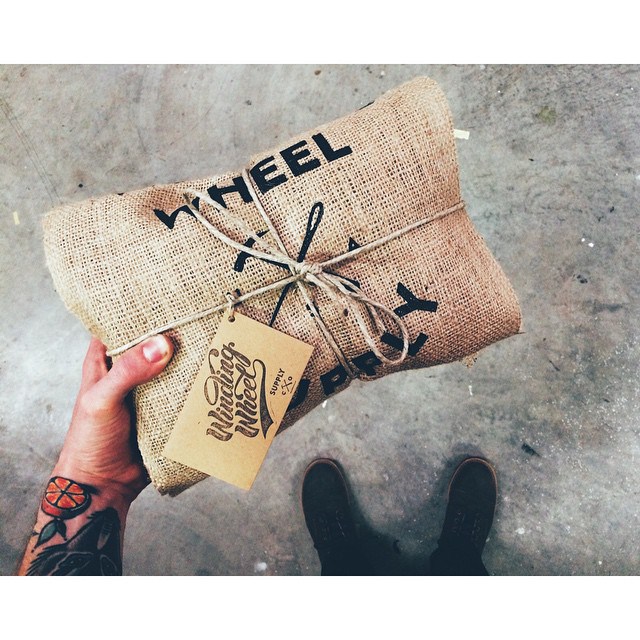 WHEEL
Winding
Wheel
SUPPLY
C O